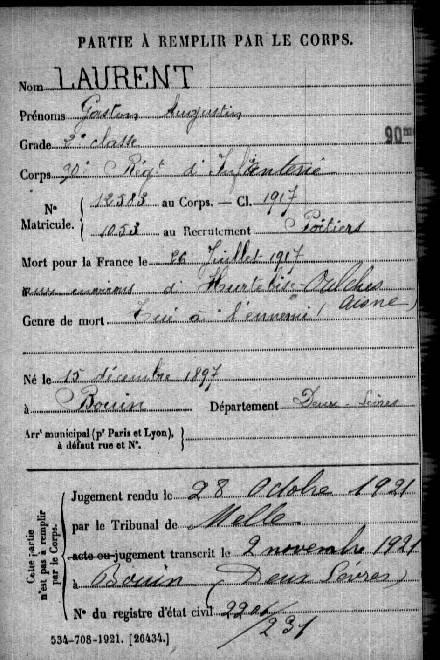 PARTIE À REMPLIR PAR LE CORPS.
Nom LAURENT
Prénoms Gaston Augustin
Grade 2e classe
90me
Corps 90e Régt d'Infanterie
N° Matricule. { 12583 au Corps. — Cl. 1917
1053 au Recrutement Poitiers
Mort pour la France le 26 Juillet 1917
environs d'Hurtebise Oulches
(Aisne)
Genre de mort Tué à l'ennemi
Né le 15 décembre 1897
à Bouin Département Deux-Sèvres
Arrt municipal (pr Paris et Lyon), à défaut rue et N°. }
Cette partie n'est pas à remplir par le Corps.
Jugement rendu le 28 Octobre 1921
par le Tribunal de Melle
acte ou jugement transcrit le 2 novembre 1921
à Bouin (Deux Sèvres)
N° du registre d'état civil
/231
534-708-1921. [26434.]